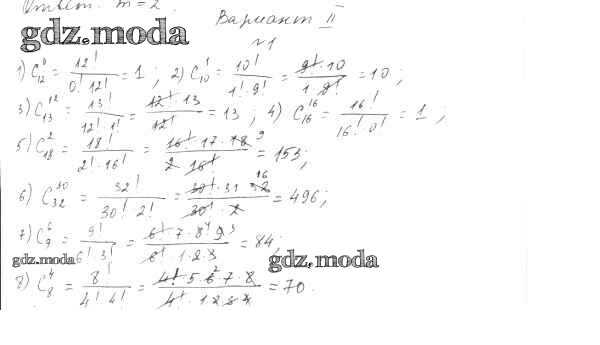 Ответ: m = 2.
gdz.moda
Вариант II
№1
1) C₁₂⁰ = 12! / (0! 12!) = 1; 2) C₁₀¹ = 10! / (1! · 9!) = (9! · 10) / (1 · 9!) = 10;
3) C₁₃¹² = 13! / (12! · 1!) = (12! · 13) / 12! = 13; 4) C₁₆¹⁶ = 16! / (16! · 0!) = 1;
5) C₁₈² = 18! / (2! · 16!) = (16! · 17 · 18 9) / (2 · 16!) = 153;
6) C₃₂³⁰ = 32! / (30! · 2!) = (30! · 31 · 32 16) / (30! · 2) = 496;
7) C₉⁶ = 9! / (6! · 3!) = (6! · 7 · 8 4 · 9 3) / (6! · 1 · 2 · 3) = 84;
gdz.moda
gdz.moda
8) C₈⁴ = 8! / (4! · 4!) = (4! · 5 · 6 2 · 7 · 8) / (4! · 1 · 2 · 3 · 4) = 70.